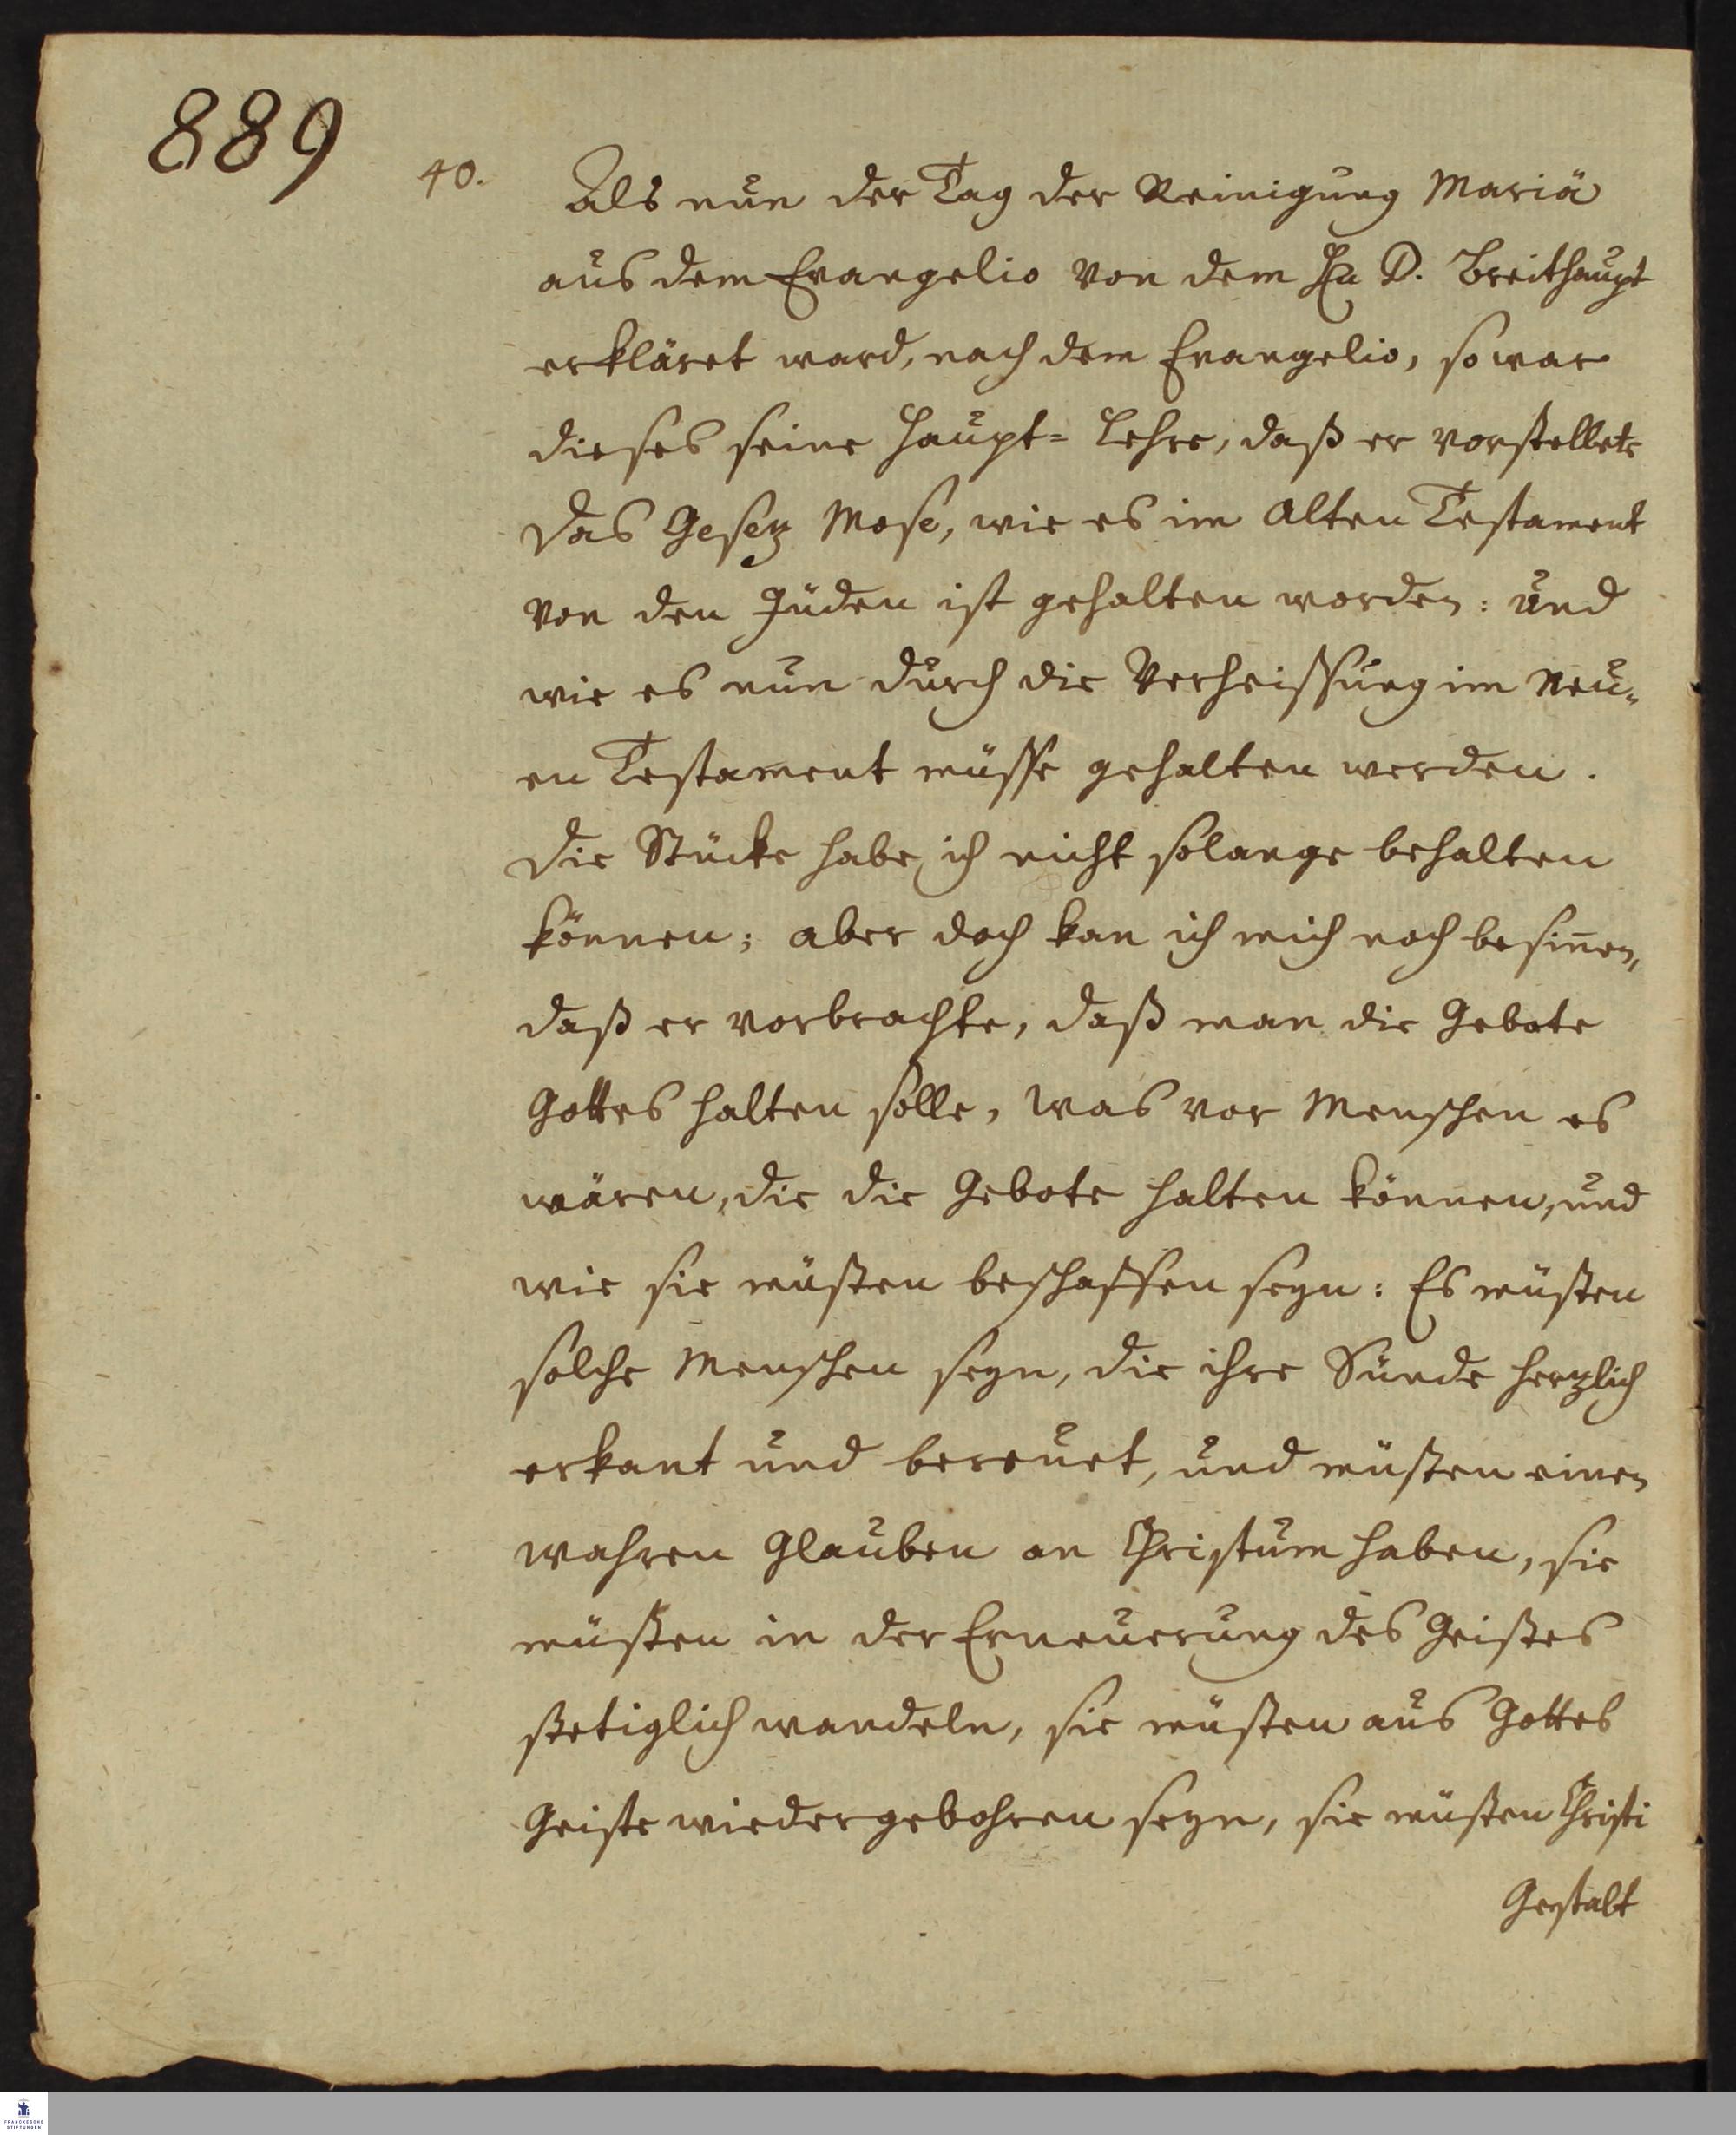 889
40.
Als nun der Tag der Reinigung Mariä
aus dem Evangelio von dem Hn D. Breithaupt
erkläret ward, nach dem Evangelio, so war
dieses seine Haupt= Lehre, daß er vorstellete
Das Gesetz Mose, wie es im Alten Testament
von den Jüden ist gehalten worden: und
wie es nun durch die Verheissung im Neu=
en Testament müsse gehalten werden.
Die Stücke habe ich nicht solange behalten
können; aber doch kan ich mich noch besin̄en,
daß er vorbrachte, daß man die Gebote
Gottes halten solle, was vor Menschen es
wären, die die Gebote halten können, und
wie sie müsten beschaffen seyn: Es müsten
solche Menschen seyn, die ihre Sünde hertzlich
erkant und bereuet, und müsten einen
wahren Glauben an Christum haben, sie
müsten in der Erneuerung des Geistes
stetiglich wandeln, sie müsten aus Gottes
Geiste wiedergebohren seyn, sie müsten Christi
Gestalt
FRANCKESCHE
STIFTUNGEN